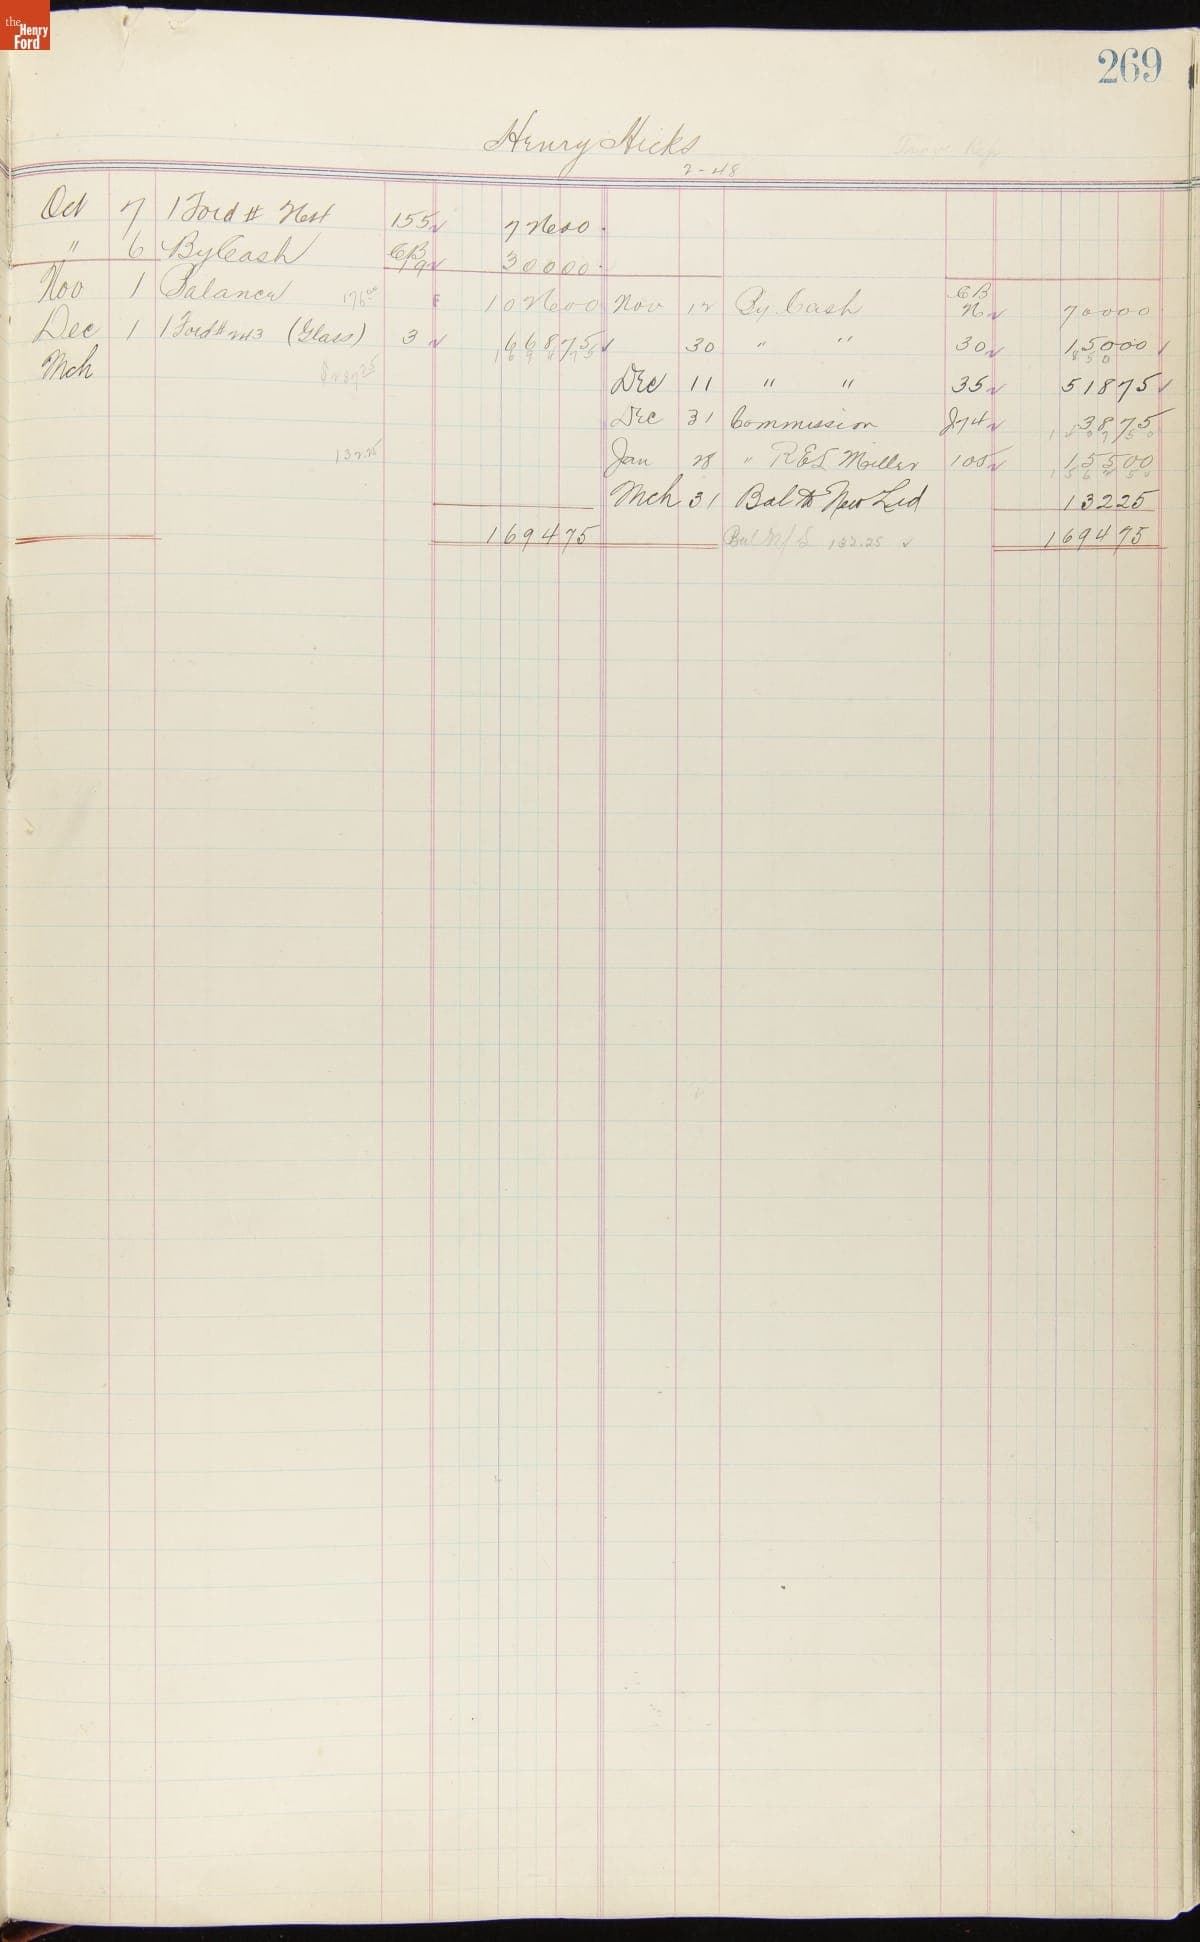 the Henry Ford
269
Henry Hicks
2-48
Oct 7 1 Ford # 155 726 00
" 6 By Cash CB 19 300 00
Nov 1 Balance 176 00 1026 00 Nov 12 By Cash CB 700 00
Dec 1 1 Ford # 243 (Glass) 3 668 75 30 " " 30 150 00
1694 75 850
Mch Dec 11 " " 35 518 75
Dec 31 Commission J74 38 75
1407 50
132 25 Jan 28 " R E L Miller 100 155 00
1562 50
Mch 31 Bal to New Led 132 25
1694 75 Bal N/L 132.25 1694 75